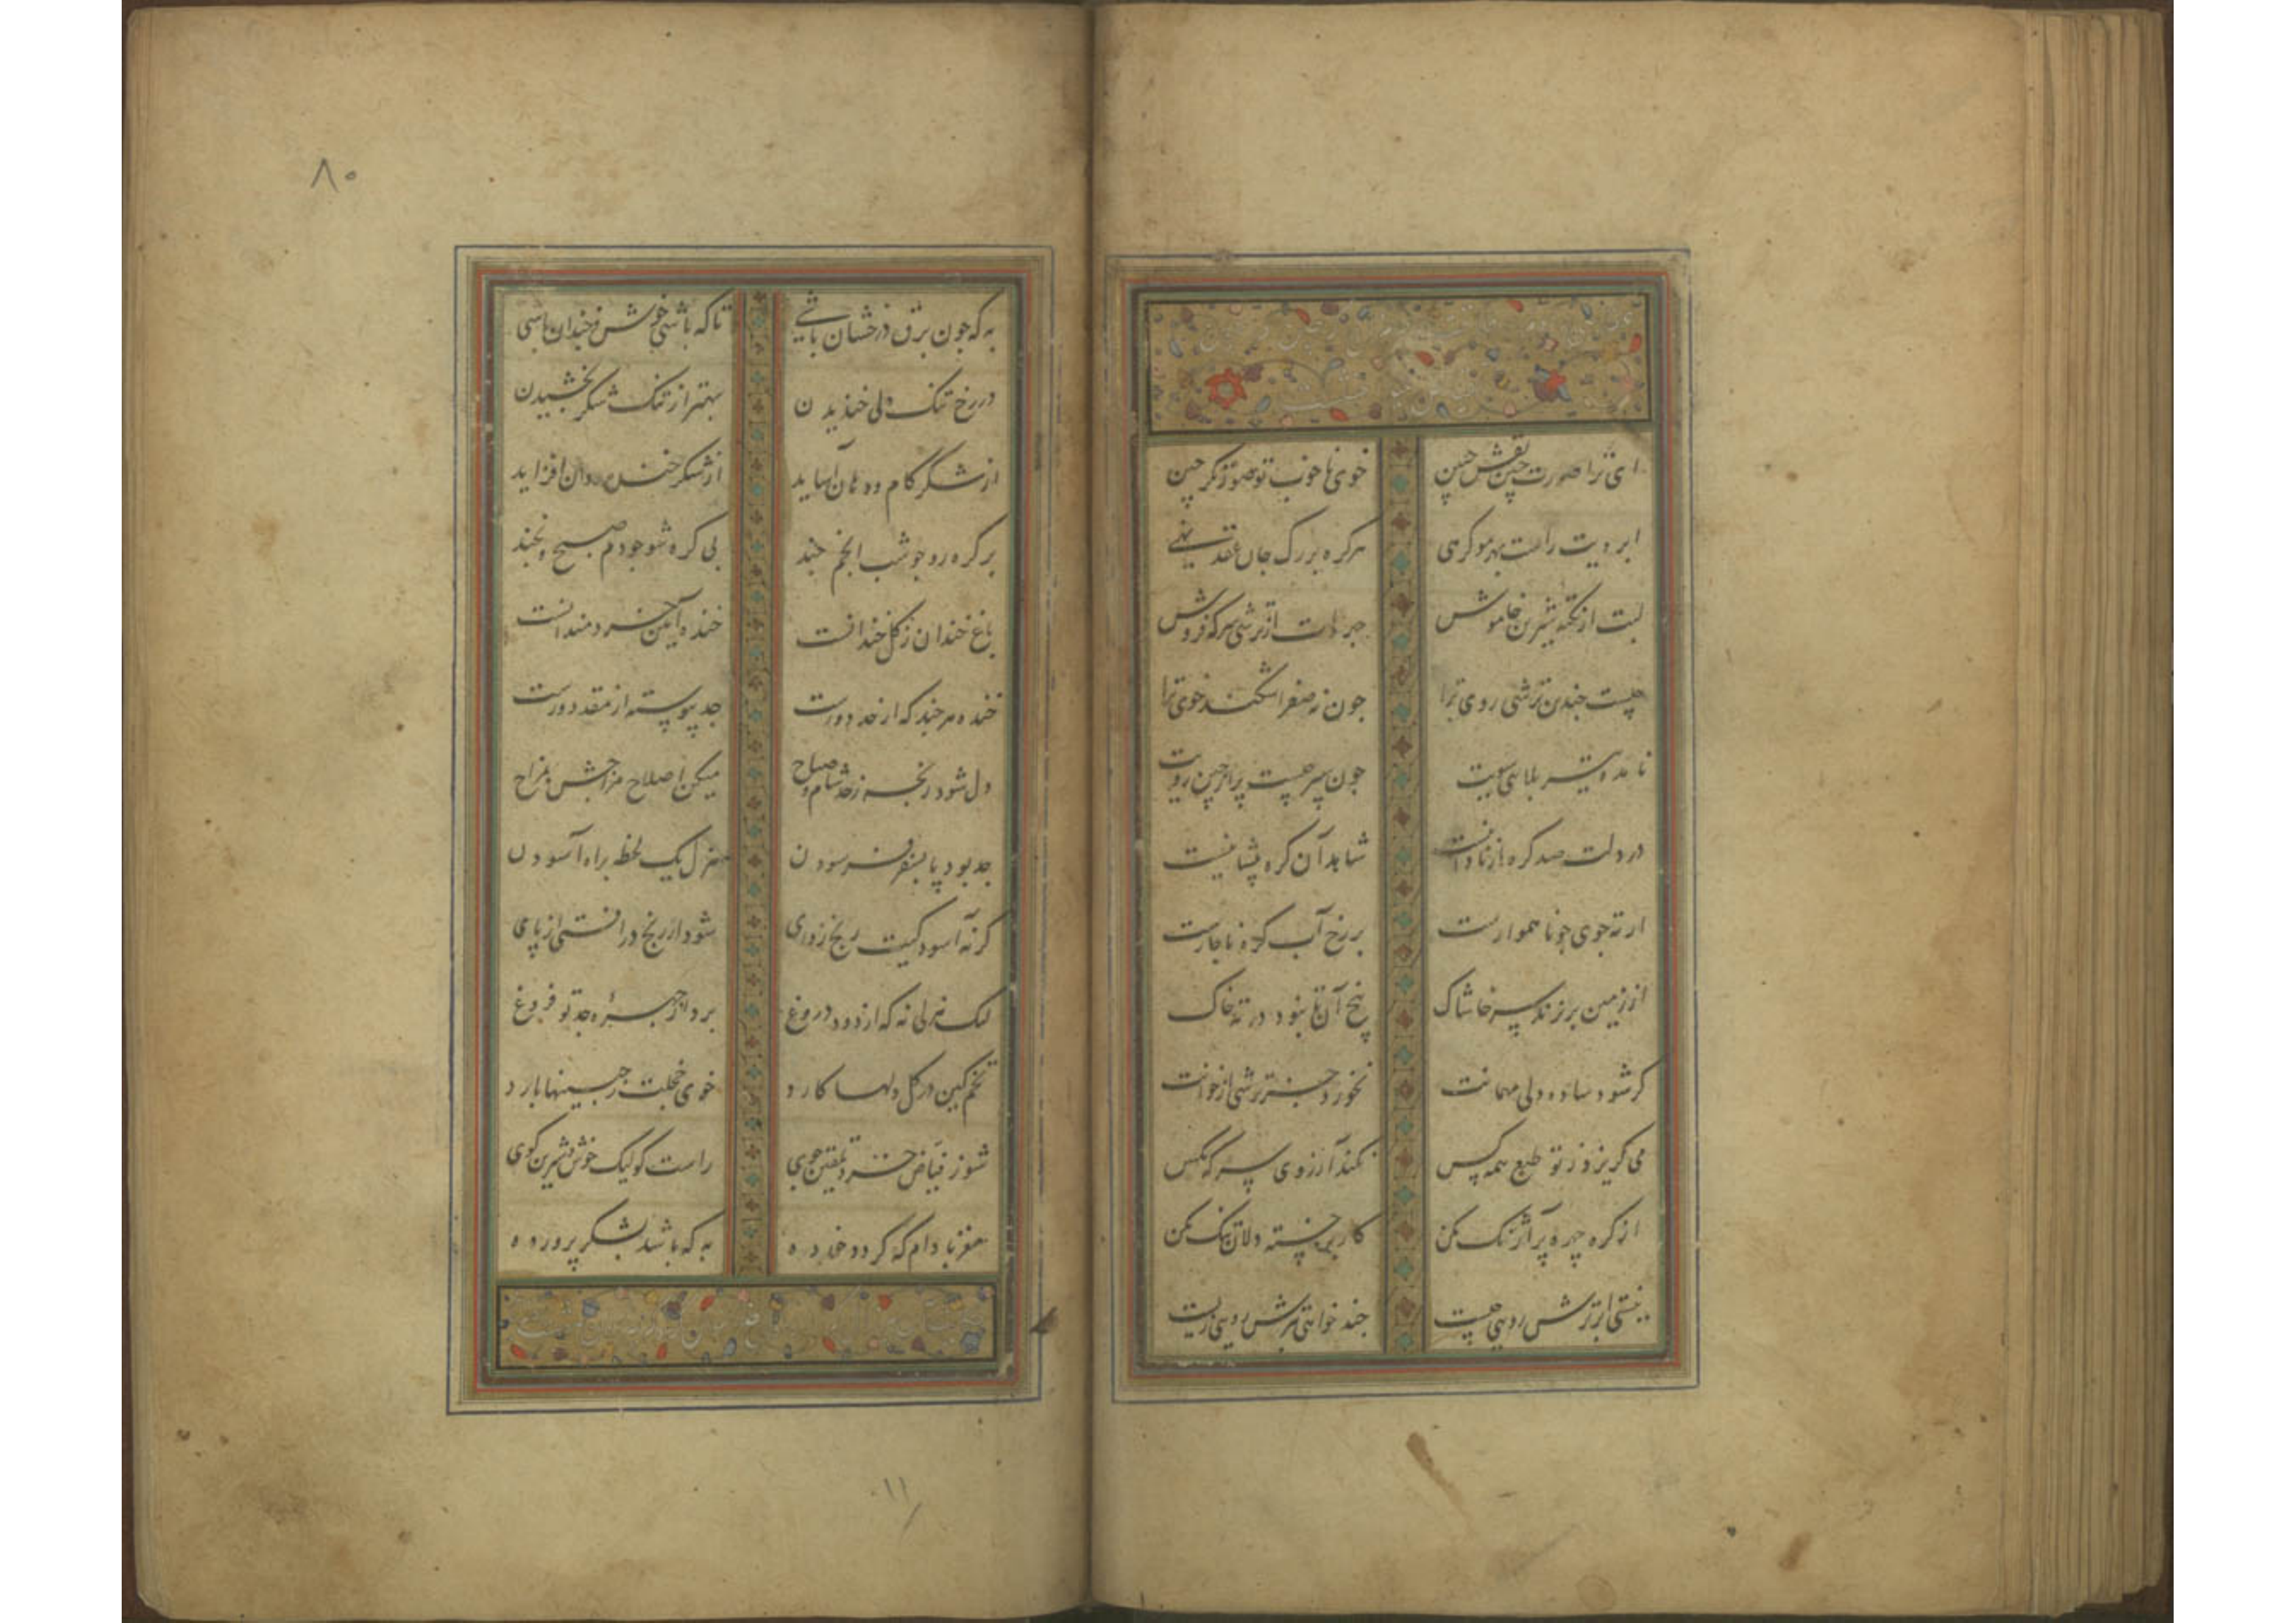 ای ترا صورت چین نقش جبین خوی ناخوب تو صورتگر چین
ابرویت راست بهر مو گرهی هر گره بر رگ جان عقد نهی
لبت از نکته شیرین خاموش جبهه‌ات از ترشی سرکه فروش
چیست چندین ترشی روی ترا چون نه صفرا شکند خوی ترا
نامده تیر بلایی سویت چون سپر چیست پر از چین رویت
در دلت صد گره از نادانیست شاهد آن گره پیشانیست
ار ته جوی چو ناهموارست بر رخ آب گره ناچارست
از زمین بر نزند سر خاشاک بیخ آن تا نبود در ته خاک
گر شود ساده دلی مهمانت نخورد جز ترشی از خوانت
می گریزد ز تو طبع همه کس نکند آرزوی سرکه مگس
از گره چهره پر آژنگ مکن کار بر خسته دلان تنگ مکن
نیستی ابر ترش رویی چیست چند خواهی بترش رویی زیست
۸۰
به که چون برق درخشان باشی تا که باشی خوش و خندان باشی
در رخ تنگ دلی خندیدن بهتر از تنگ شکر بخشیدن
از شکر کام و دهان آساید از شکر خنده روان افزاید
پر گره رو چو شب انجم چند بی گره شو چو دم صبح و بخند
باغ خندان ز گل خندانست خنده آیین خردمندانست
خنده هر چند که از جد دورست جد پیوسته از مقدورست
دل شود رنجه ز جد شام و صباح میکن اصلاح مزاجش بمزاح
جد بود پا بسفر فرسودن هزل یک لحظه براه آسودن
گر نه آسودگیت رنج زدای شود از رنج در افتی از پای
لیک هزلی نه که از دود دروغ برد از چهره جد تو فروغ
تخم کین در گل دلها کارد خوی خجلت ز جبینها بارد
شو ز فیاض خرد تلقین جوی راست گو لیک خوش و شیرین گوی
مغز بادام که گردد خورده به که باشد بشکر پرورده
۱۱